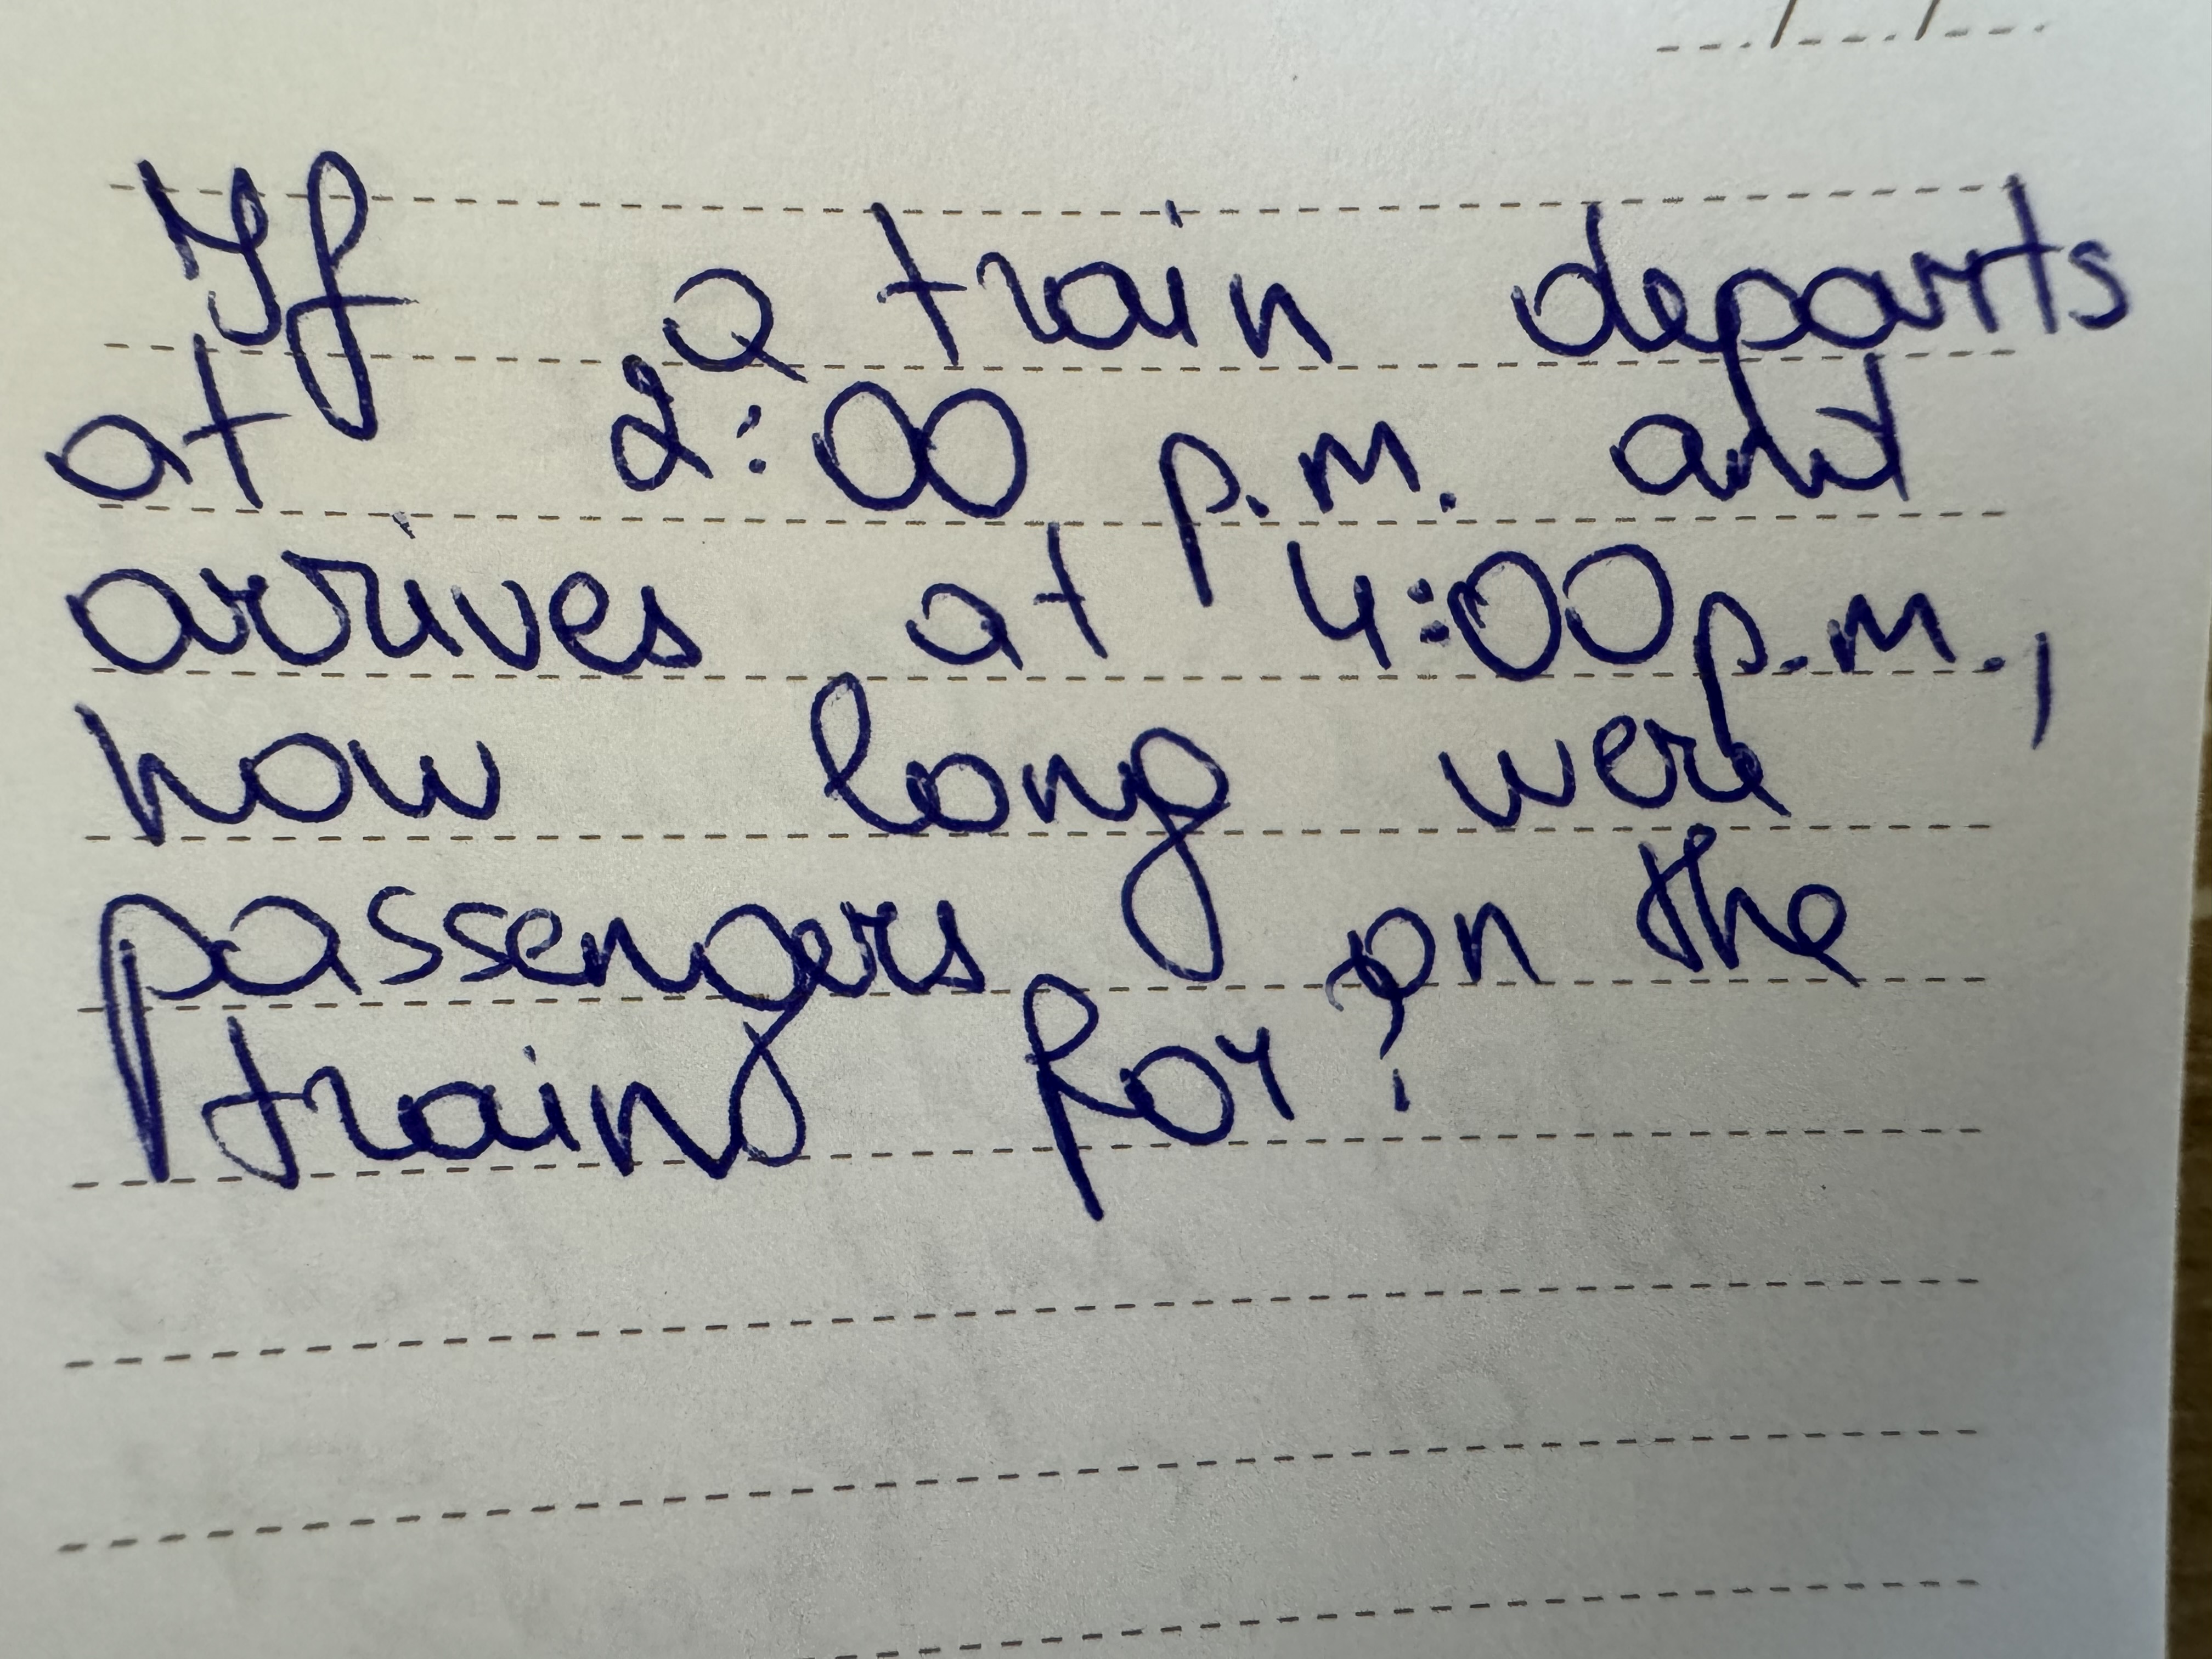 If a train departs
at 2:00 p.m. and
arrives at 4:00 p.m.,
how long were
passengers on the
train for?